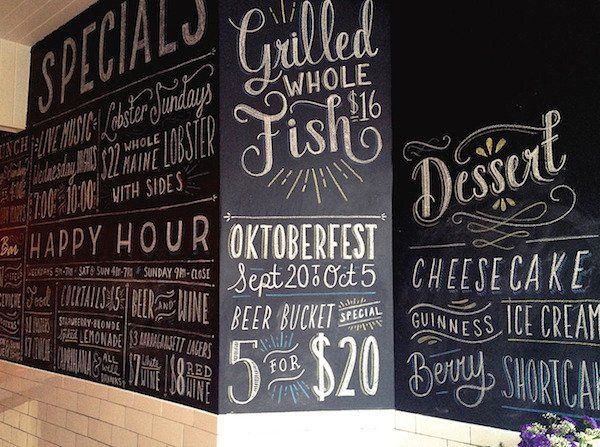 SPECIALS
LIVE MUSIC
Wednesday NIGHTS
7:00 TO 10:00
Lobster Sundays
$22 WHOLE MAINE LOBSTER
WITH SIDES
Bar
HAPPY HOUR
SUNDAY 9PM-CLOSE
Food
COCKTAILS $5
STRAWBERRY-BLONDE
LEMONADE
& ALL WELL DRINKS
BEER AND WINE
$3 NARRAGANSETT LAGERS
$7 White WINE
$8 RED WINE
Grilled
WHOLE
Fish $16
OKTOBERFEST
Sept 20 TO Oct 5
BEER BUCKET SPECIAL
5 FOR $20
Dessert
CHEESECAKE
GUINNESS ICE CREAM
Berry SHORTCAK